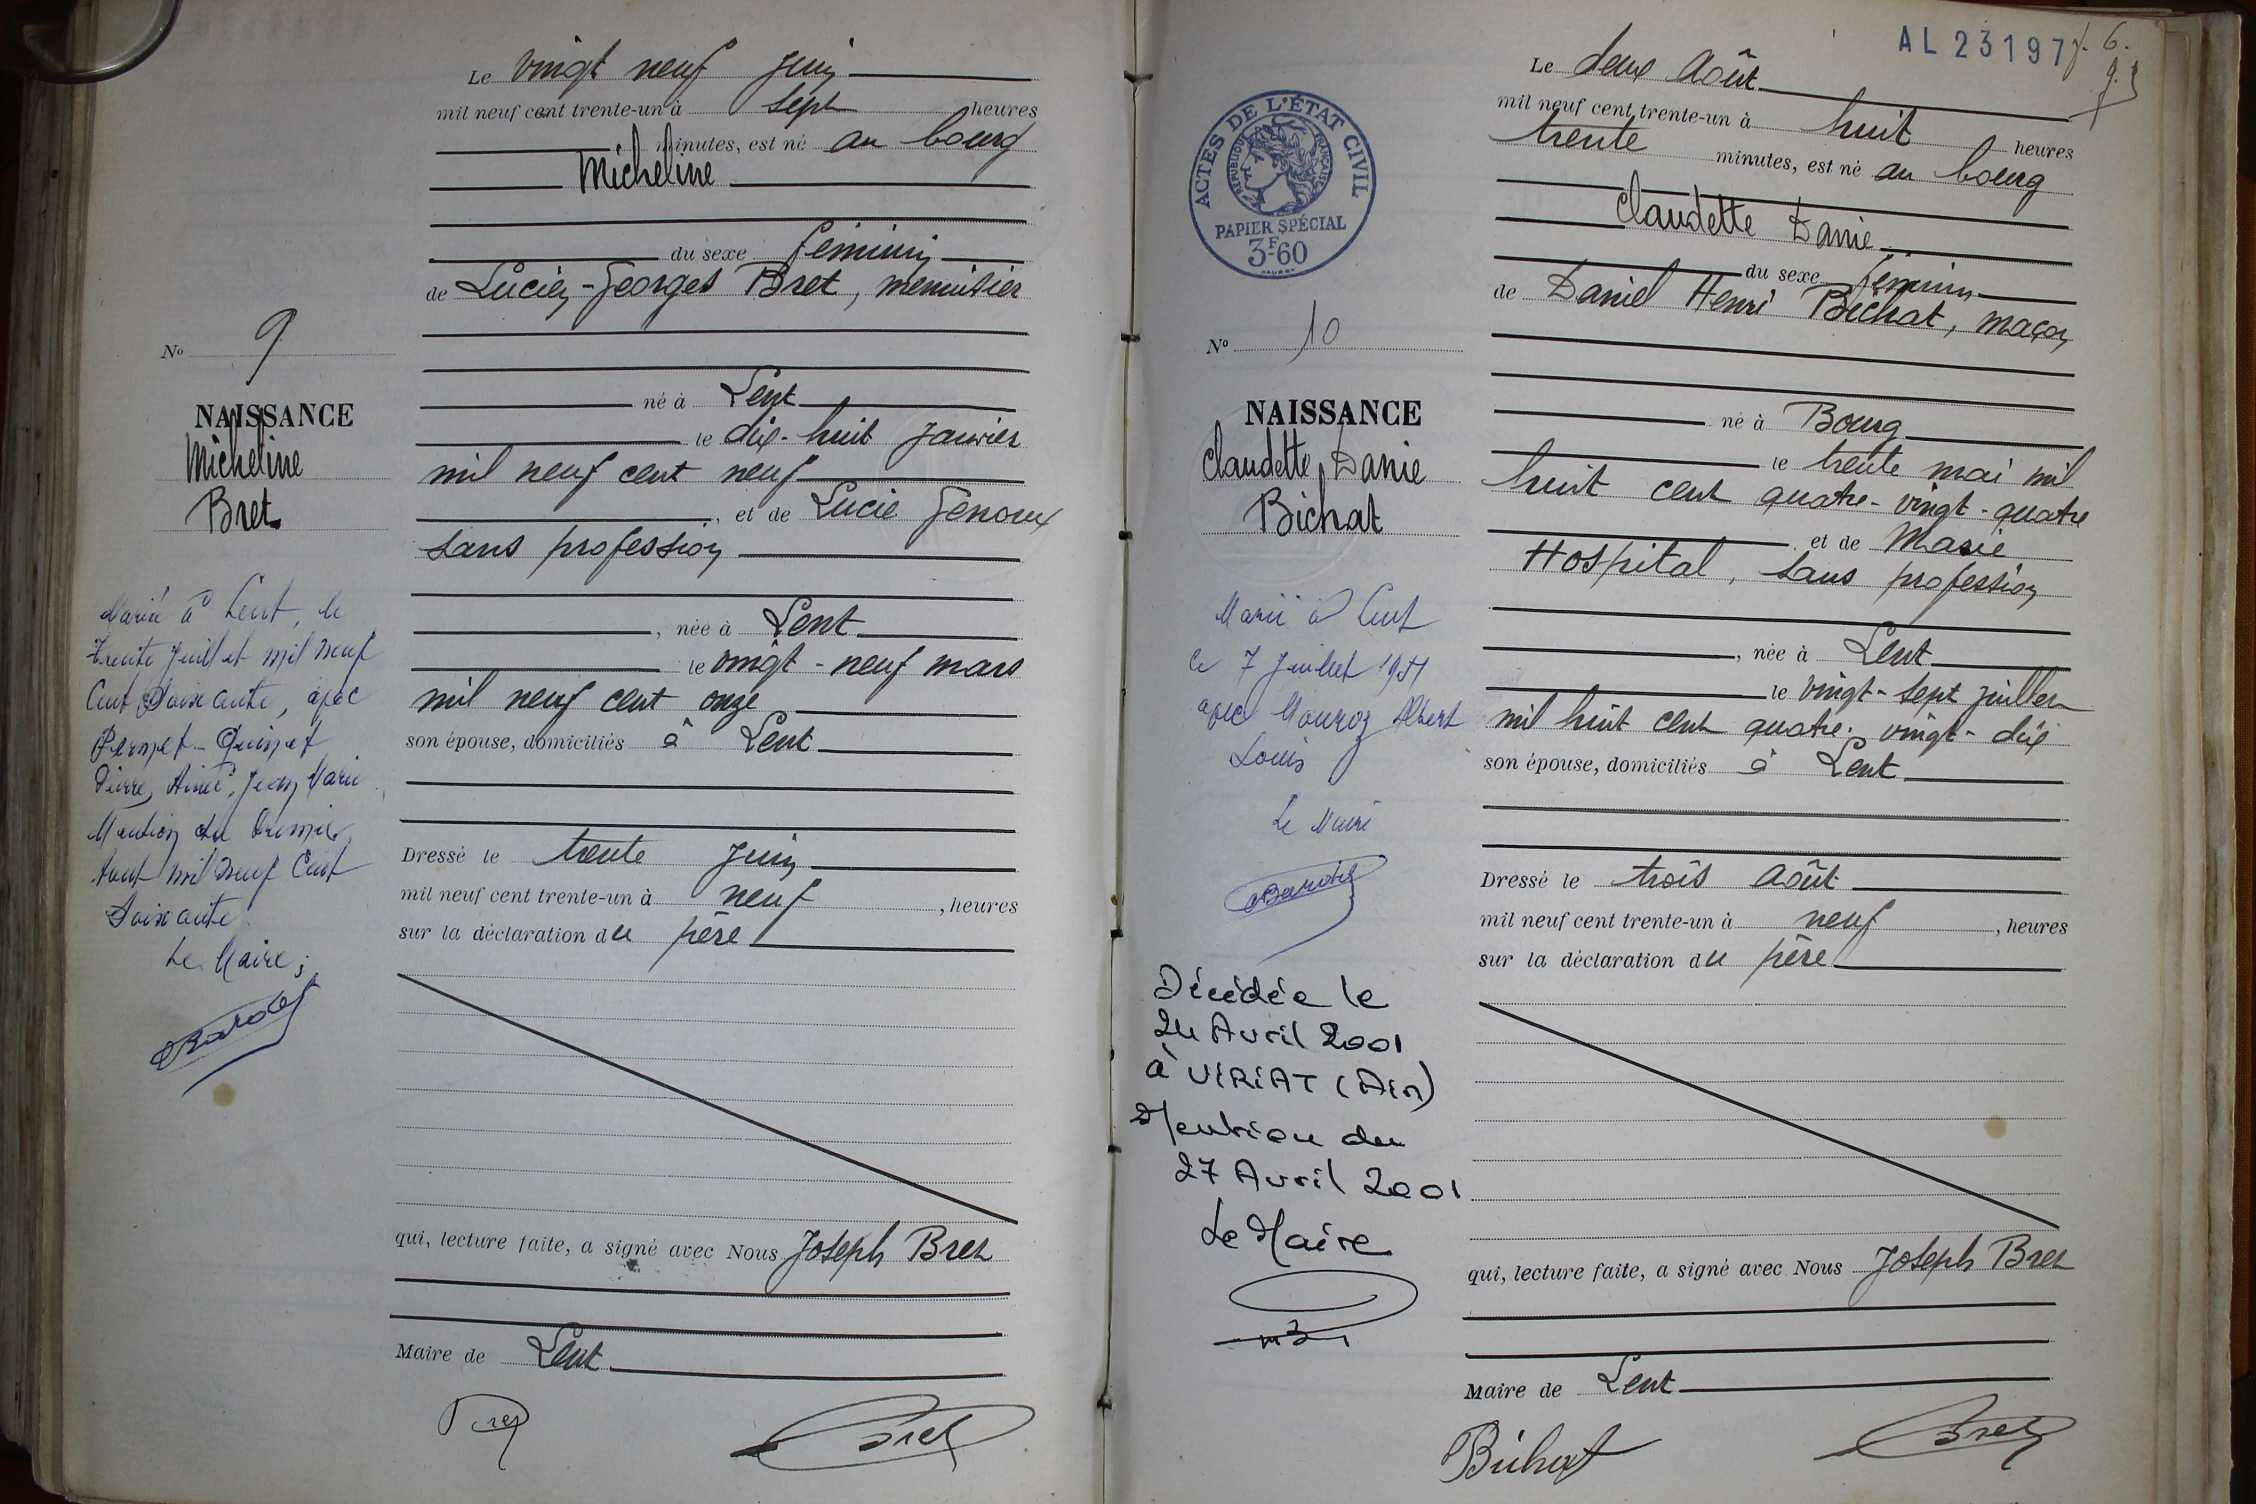 Le vingt neuf juin
mil neuf cent trente-un à sept heures
minutes, est né au bourg
Micheline
du sexe féminin
de Lucien-Georges Bret, menuisier
né à Lent
le dix-huit janvier
mil neuf cent neuf
et de Lucie Genoux
sans profession
, née à Lent
le vingt-neuf mars
mil neuf cent onze
son épouse, domiciliés à Lent
Dressé le trente juin
mil neuf cent trente-un à neuf , heures
sur la déclaration du père
qui, lecture faite, a signé avec Nous Joseph Bret
Maire de Lent
Bret
Bret
No 9
NAISSANCE
Micheline
Bret
Marié à Lent, le
trente juillet mil neuf
Cent Soixante, avec
Pernet-Quinet
Pierre, Aimé, Jean, Marie
Mention du Premier
Aout mil neuf Cent
Soixante
Le Maire;
AL 23197
Le deux Août
mil neuf cent trente-un à huit heures
trente minutes, est né au bourg
Claudette Danie
du sexe féminin
de Daniel Henri Bichat, maçon
né à Bourg
le trente mai mil
huit cent quatre-vingt-quatre
et de Marie
Hospital, sans profession
, née à Lent
le vingt-sept juillet
mil huit cent quatre-vingt-dix
son épouse, domiciliés à Lent
Dressé le trois Août
mil neuf cent trente-un à neuf , heures
sur la déclaration du père
qui, lecture faite, a signé avec Nous Joseph Bret
Maire de Lent
Bichat
Bret
ACTES DE L'ÉTAT CIVIL
RÉPUBLIQUE FRANÇAISE
PAPIER SPÉCIAL
3F-60
No 10
NAISSANCE
Claudette Danie
Bichat
Marié à Lent
le 7 Juillet 1951
avec Mouroz Albert
Louis
Le Maire
Décédée le
24 Avril 2001
à VIRIAT (Ain)
Mention du
27 Avril 2001
Le Maire